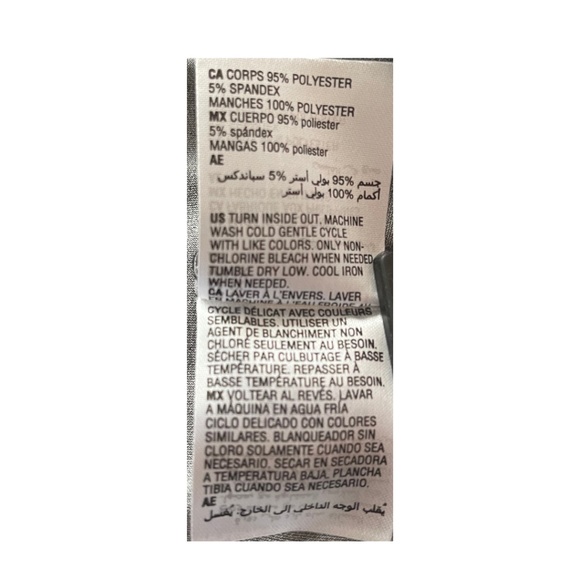 CA CORPS 95% POLYESTER
5% SPANDEX
MANCHES 100% POLYESTER
MX CUERPO 95% poliester
5% spándex
MANGAS 100% poliester
AE
جسم 95% بولي أستر 5% سباندكس
أكمام 100% بولي أستر
US TURN INSIDE OUT. MACHINE
WASH COLD GENTLE CYCLE
WITH LIKE COLORS. ONLY NON-
CHLORINE BLEACH WHEN NEEDED.
TUMBLE DRY LOW. COOL IRON
WHEN NEEDED.
CA LAVER À L'ENVERS. LAVER
EN MACHINE À L'EAU FROIDE AU
CYCLE DÉLICAT AVEC COULEURS
SEMBLABLES. UTILISER UN
AGENT DE BLANCHIMENT NON
CHLORÉ SEULEMENT AU BESOIN.
SÉCHER PAR CULBUTAGE À BASSE
TEMPÉRATURE. REPASSER À
BASSE TEMPÉRATURE AU BESOIN.
MX VOLTEAR AL REVÉS. LAVAR
A MÁQUINA EN AGUA FRÍA
CICLO DELICADO CON COLORES
SIMILARES. BLANQUEADOR SIN
CLORO SOLAMENTE CUANDO SEA
NECESARIO. SECAR EN SECADORA
A TEMPERATURA BAJA. PLANCHA
TIBIA CUANDO SEA NECESARIO.
AE
يُقلب الوجه الداخلي إلى الخارج. يُغسل